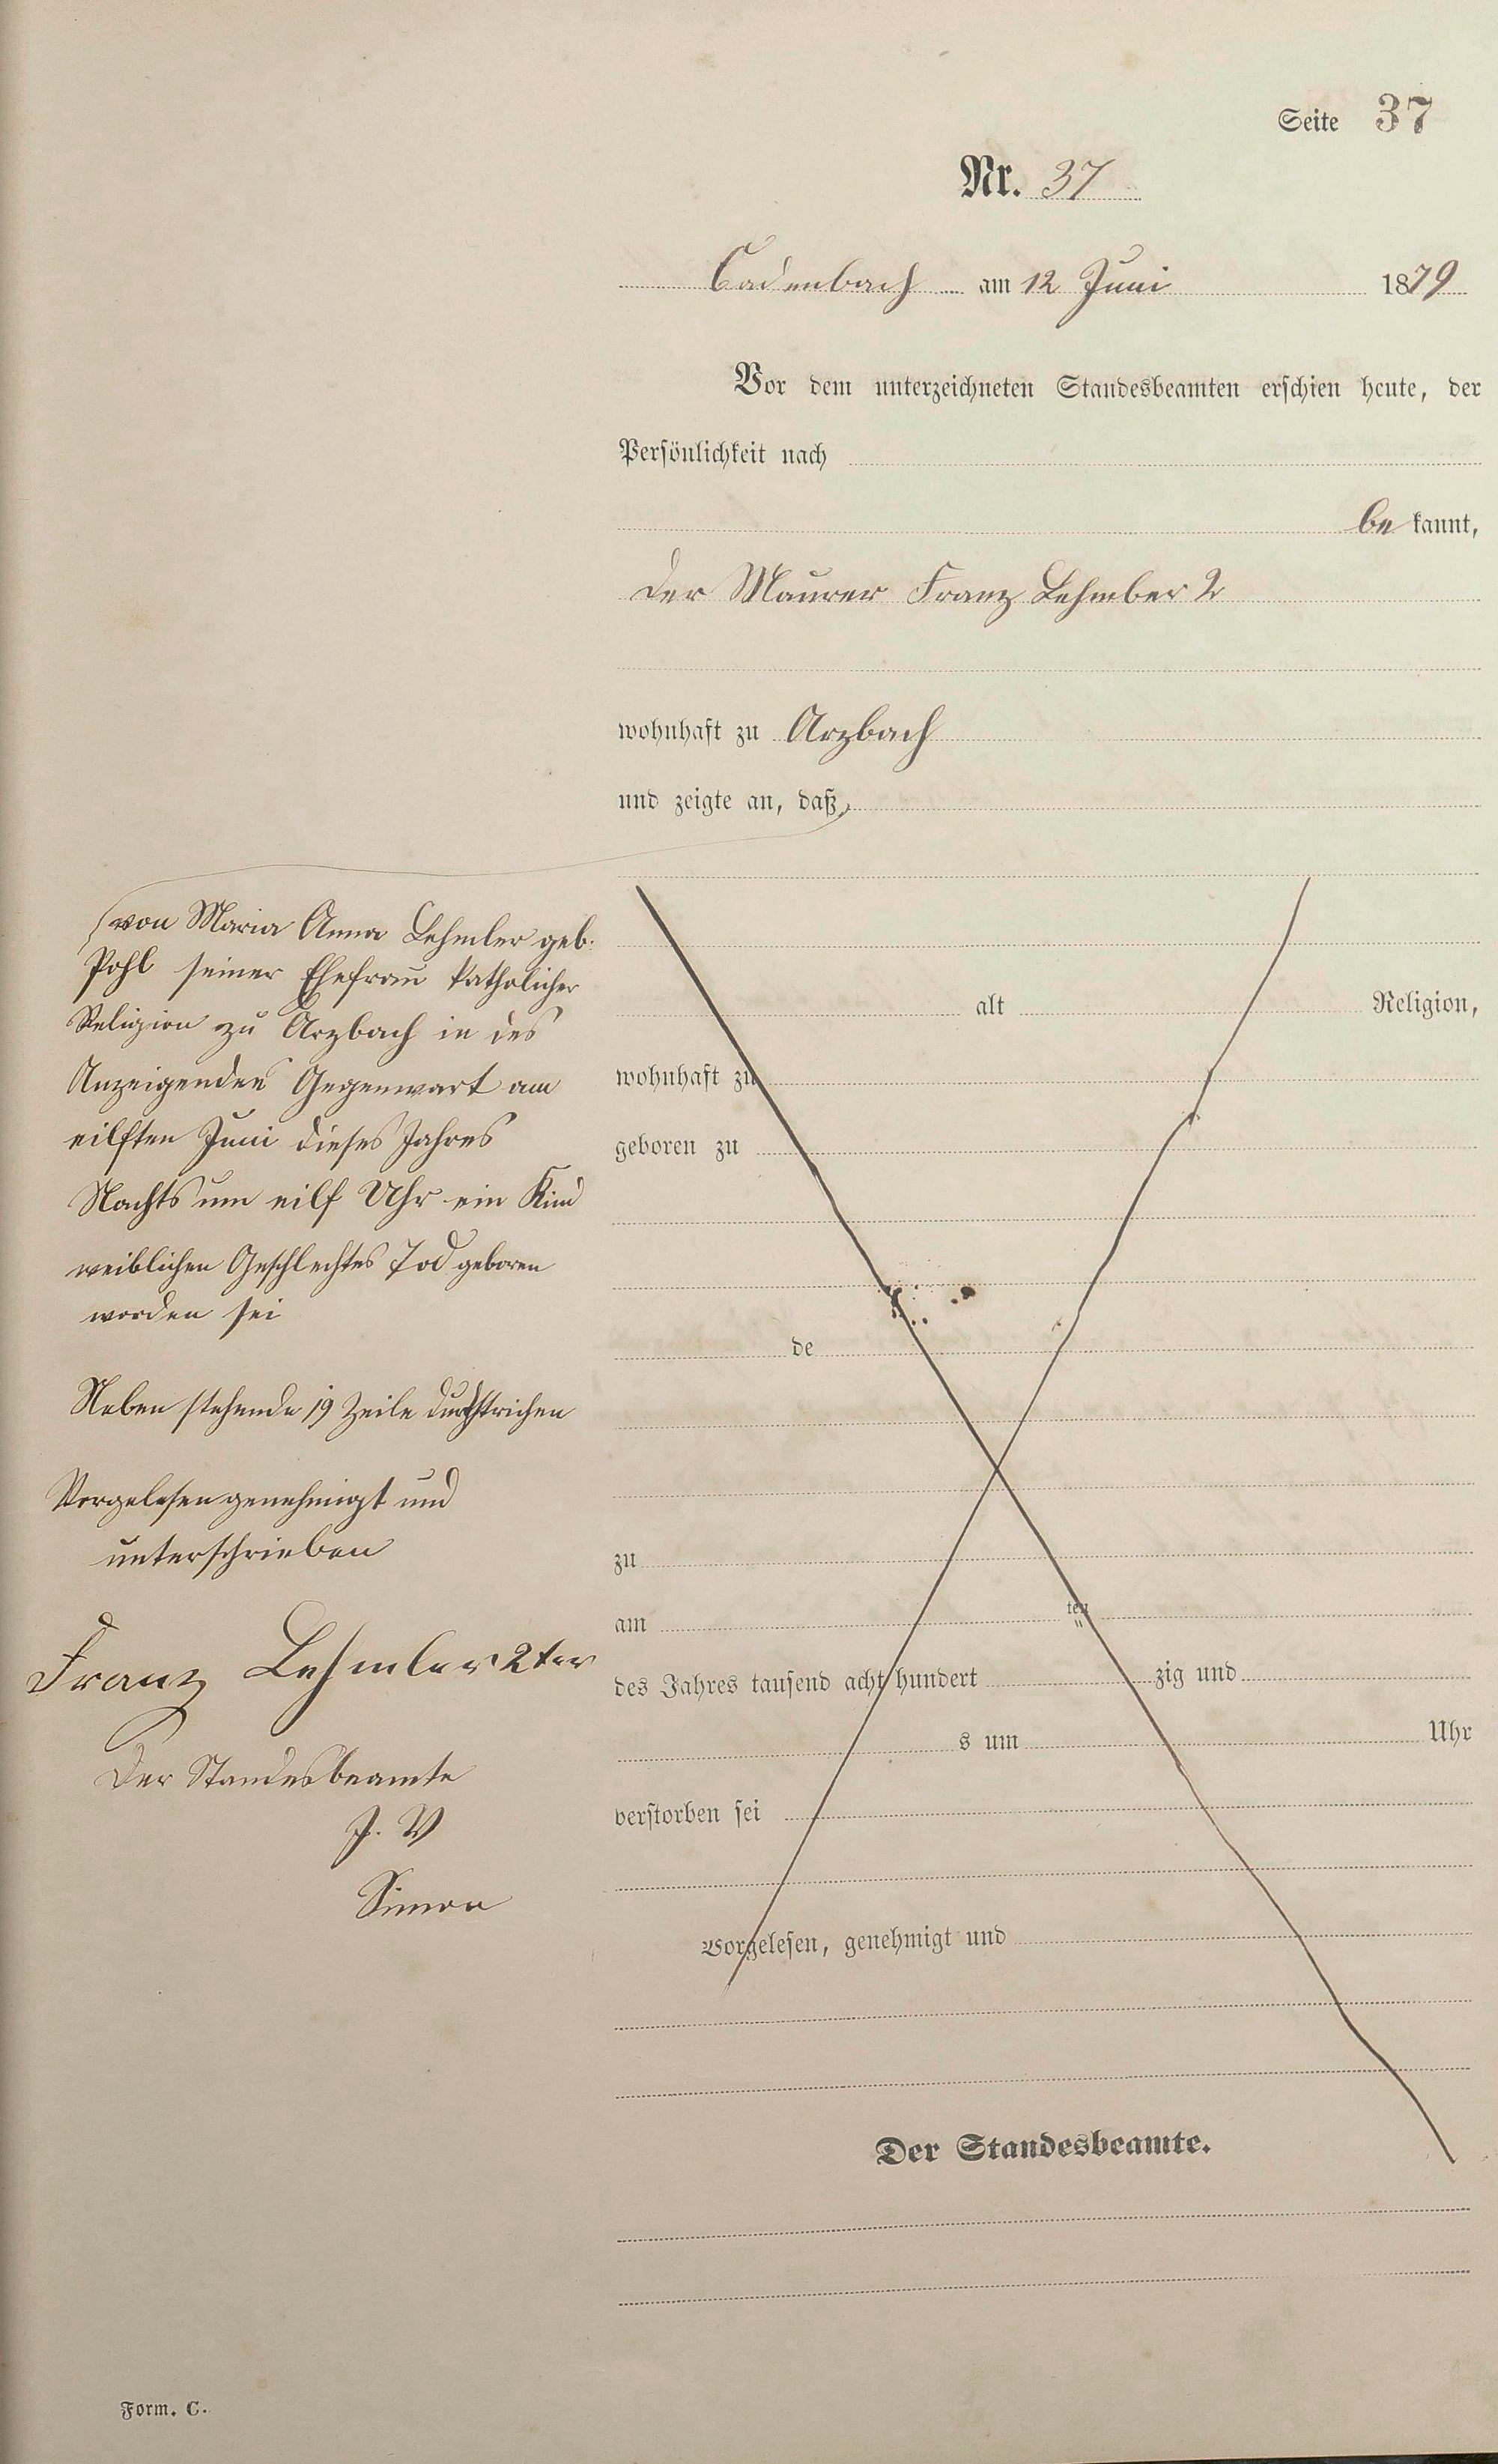 Seite 37
Nr. 37
Cadenbach am 12 Juni 1879
Vor dem unterzeichneten Standesbeamten erschien heute, der
Persönlichkeit nach
be kannt,
der Maurer Franz Lehmber 2
wohnhaft zu Arzbach
und zeigte an, daß,
von Maria Anna Lehmler geb.
Pohl seiner Ehefrau katholicher
Religion zu Arzbach in des
Anzeigenden Gegenwart am
eilften Juni dieses Jahres
Nachts um eilf Uhr ein Kind
weiblichen Geschlechtes Tod geboren
worden sei
Neben stehende 19 Zeile durchstrichen
Vorgelesen genehmigt und
unterschrieben
Franz Lehmler 2ter
Der Standesbeamte
J. V
Simon
alt Religion,
wohnhaft zu
geboren zu
de
zu
am ten
des Jahres tausend acht hundert zig und
s um Uhr
verstorben sei
Vorgelesen, genehmigt und
Der Standesbeamte.
Form. C.